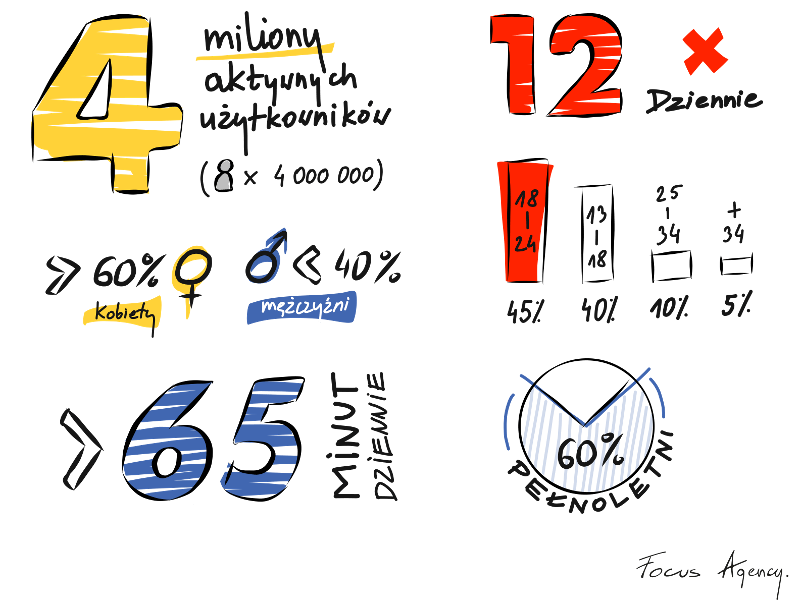 4 miliony
aktywnych
użytkowników
( x 4 000 000)
12 x
Dziennie
>> 60% << 40%
Kobiety mężczyźni
18 - 24
13 - 18
25 - 34
+ 34
45% 40% 10% 5%
> 65 MiNUT
DZiENNiE
60%
PEŁNOLETNI
Focus Agency.